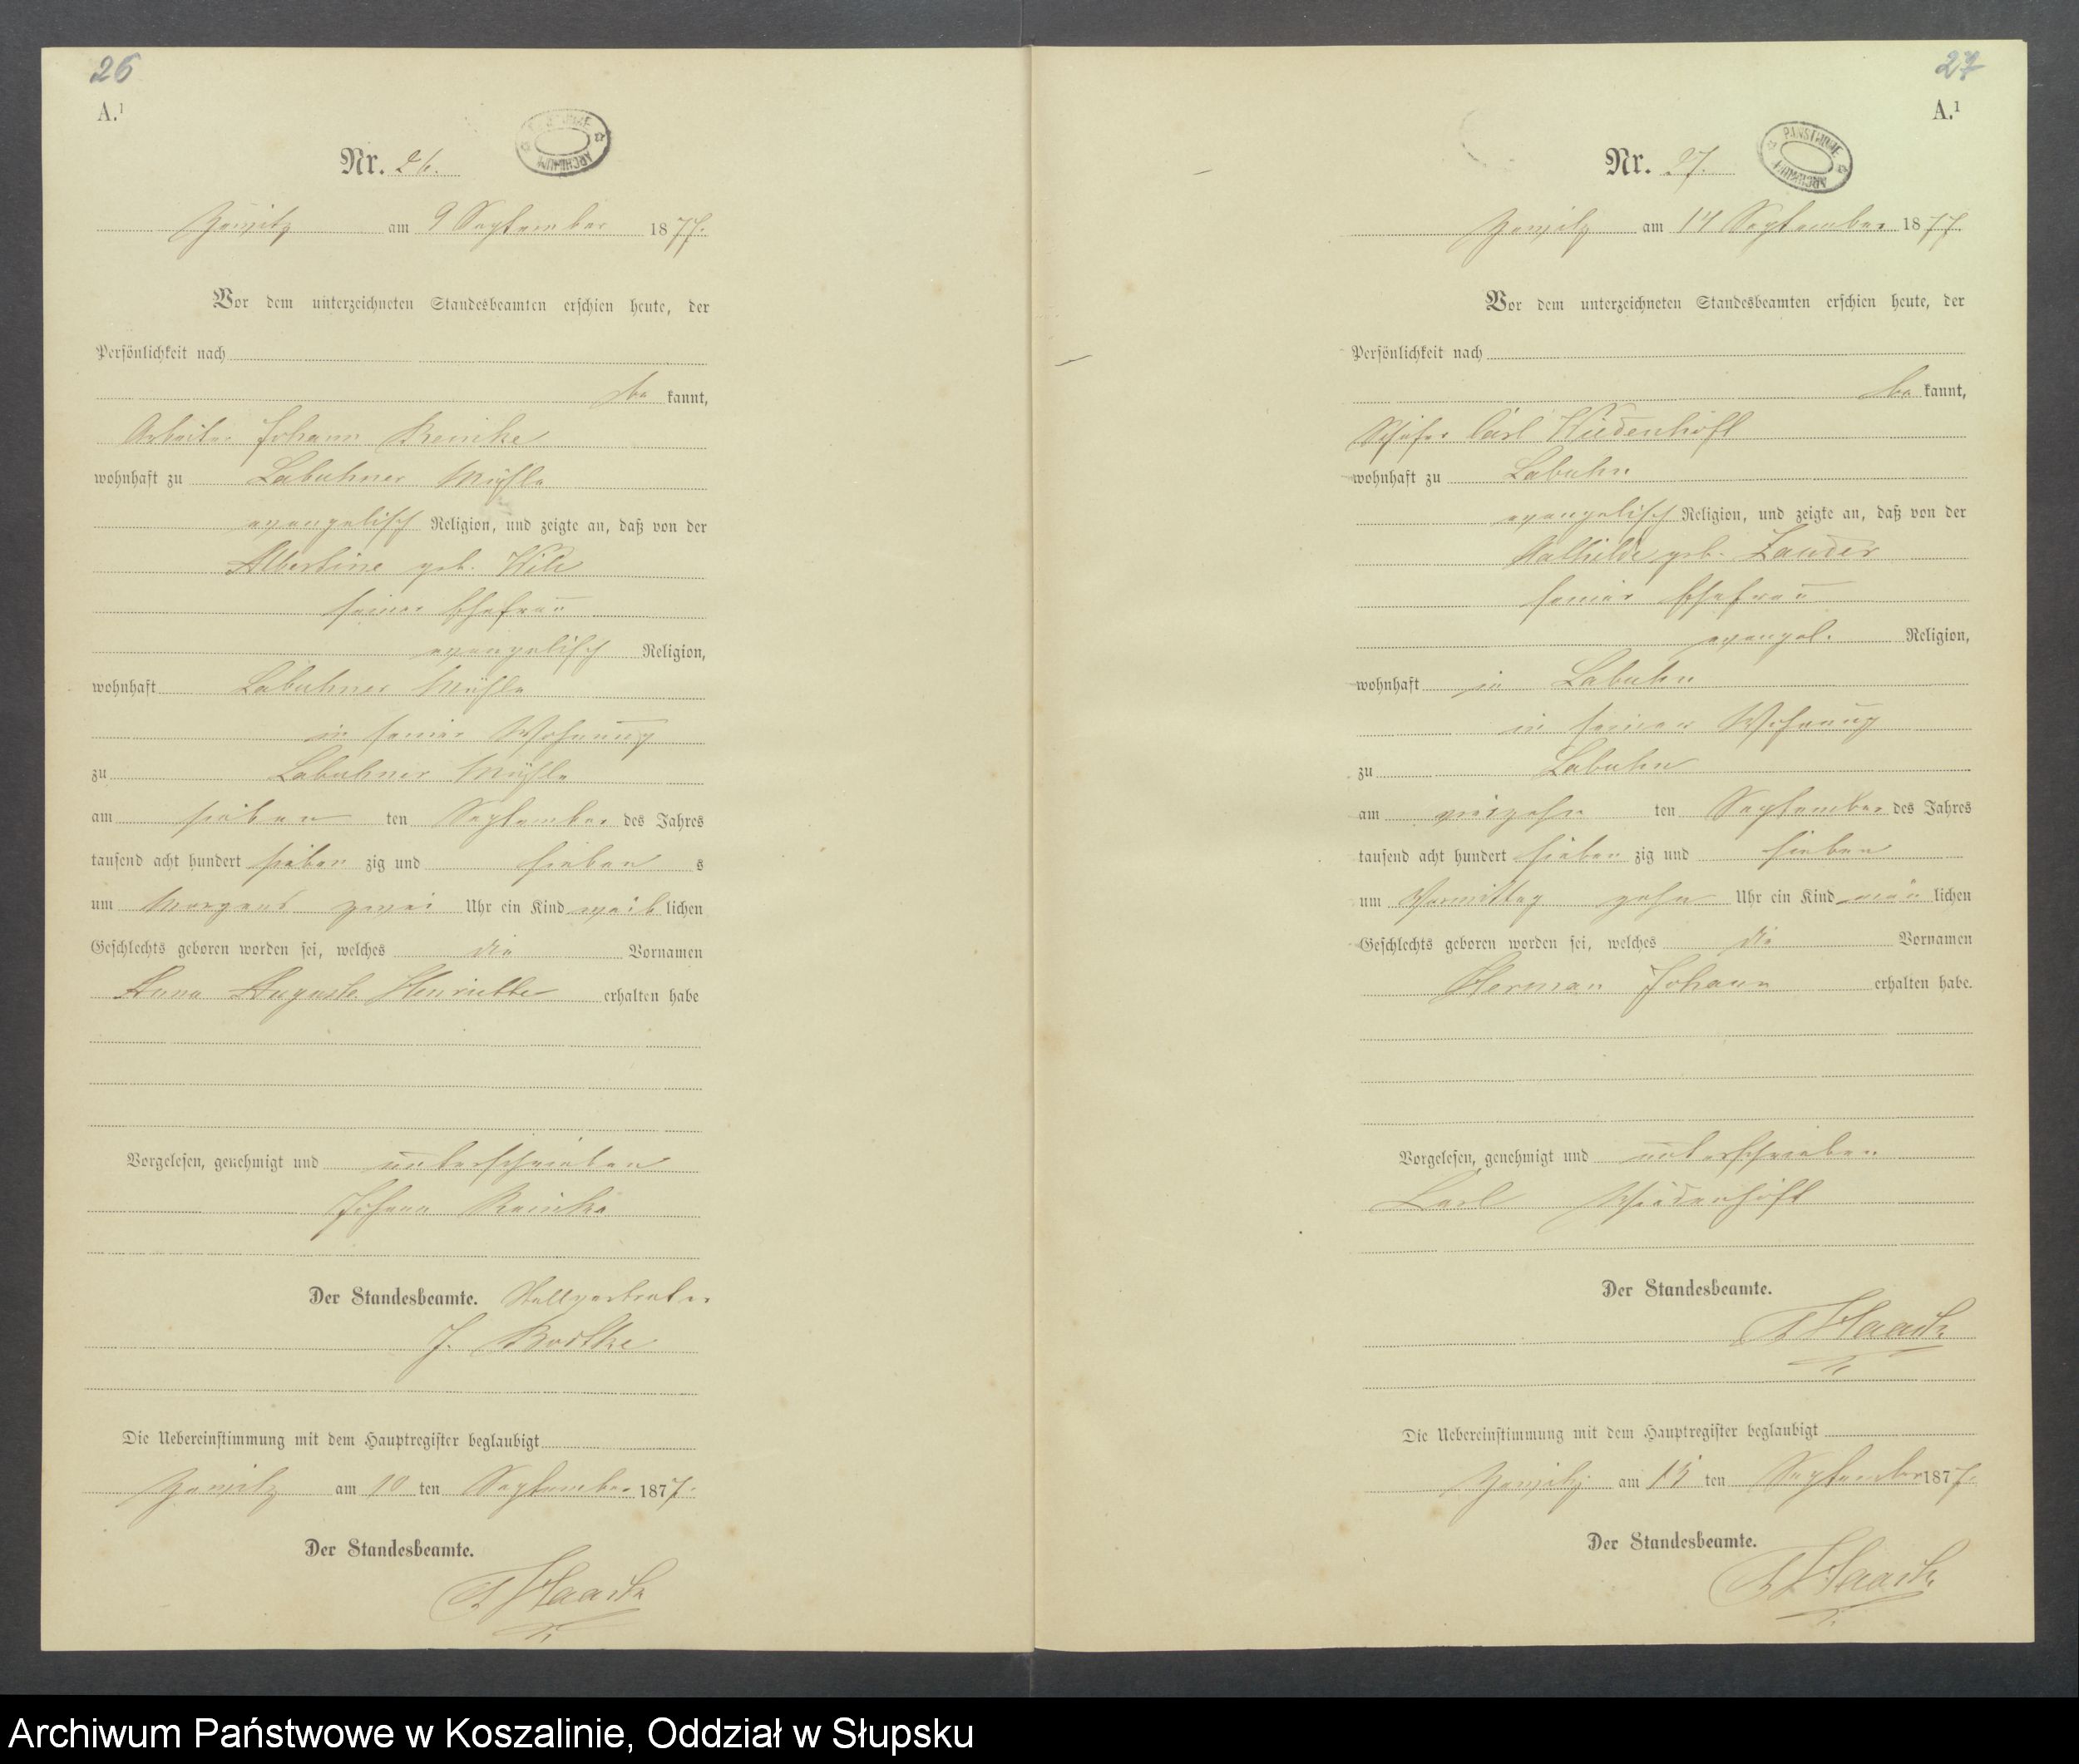 26
A.¹
Nr. 26.
Zewitz am 9 September 1877.
Vor dem unterzeichneten Standesbeamten erschien heute, der
Persönlichkeit nach
be kannt,
Arbeiter Johann Reinke
wohnhaft zu Labuhner Mühle
evangelisch Religion, und zeigte an, daß von der
Albertine geb. Wilk
seiner Ehefrau
evangelisch Religion,
wohnhaft Labuhner Mühle
in seiner Wohnung
zu Labuhner Mühle
am sieben ten September des Jahres
tausend acht hundert sieben zig und sieben s
um Morgens zwei Uhr ein Kind weib lichen
Geschlechts geboren worden sei, welches die Vornamen
Anna Auguste Henriette erhalten habe
Vorgelesen, genehmigt und unterschrieben
Johann Reinke
Der Standesbeamte. Stellvertreter
J. Radtke
Die Uebereinstimmung mit dem Hauptregister beglaubigt
Zewitz am 10 ten September 1877.
Der Standesbeamte.
Haack
27
A.¹
Nr. 27.
PAŃSTWOWE ARCHIWUM
Zewitz am 14 September 1877.
Vor dem unterzeichneten Standesbeamten erschien heute, der
Persönlichkeit nach
be kannt,
Schäfer Carl Wiedenhöft
wohnhaft zu Labuhn
evangelisch Religion, und zeigte an, daß von der
Mathilde geb. Zander
seiner Ehefrau
evangel. Religion,
wohnhaft in Labuhn
in seiner Wohnung
zu Labuhn
am vierzehn ten September des Jahres
tausend acht hundert sieben zig und sieben
um Vormittag zehn Uhr ein Kind män lichen
Geschlechts geboren worden sei, welches die Vornamen
Herman Johann erhalten habe.
Vorgelesen, genehmigt und unterschrieben
Carl Wiedenhöft
Der Standesbeamte.
Haack
Die Uebereinstimmung mit dem Hauptregister beglaubigt
Zewitz am 15 ten September 1877.
Der Standesbeamte.
Haack
Archiwum Państwowe w Koszalinie, Oddział w Słupsku